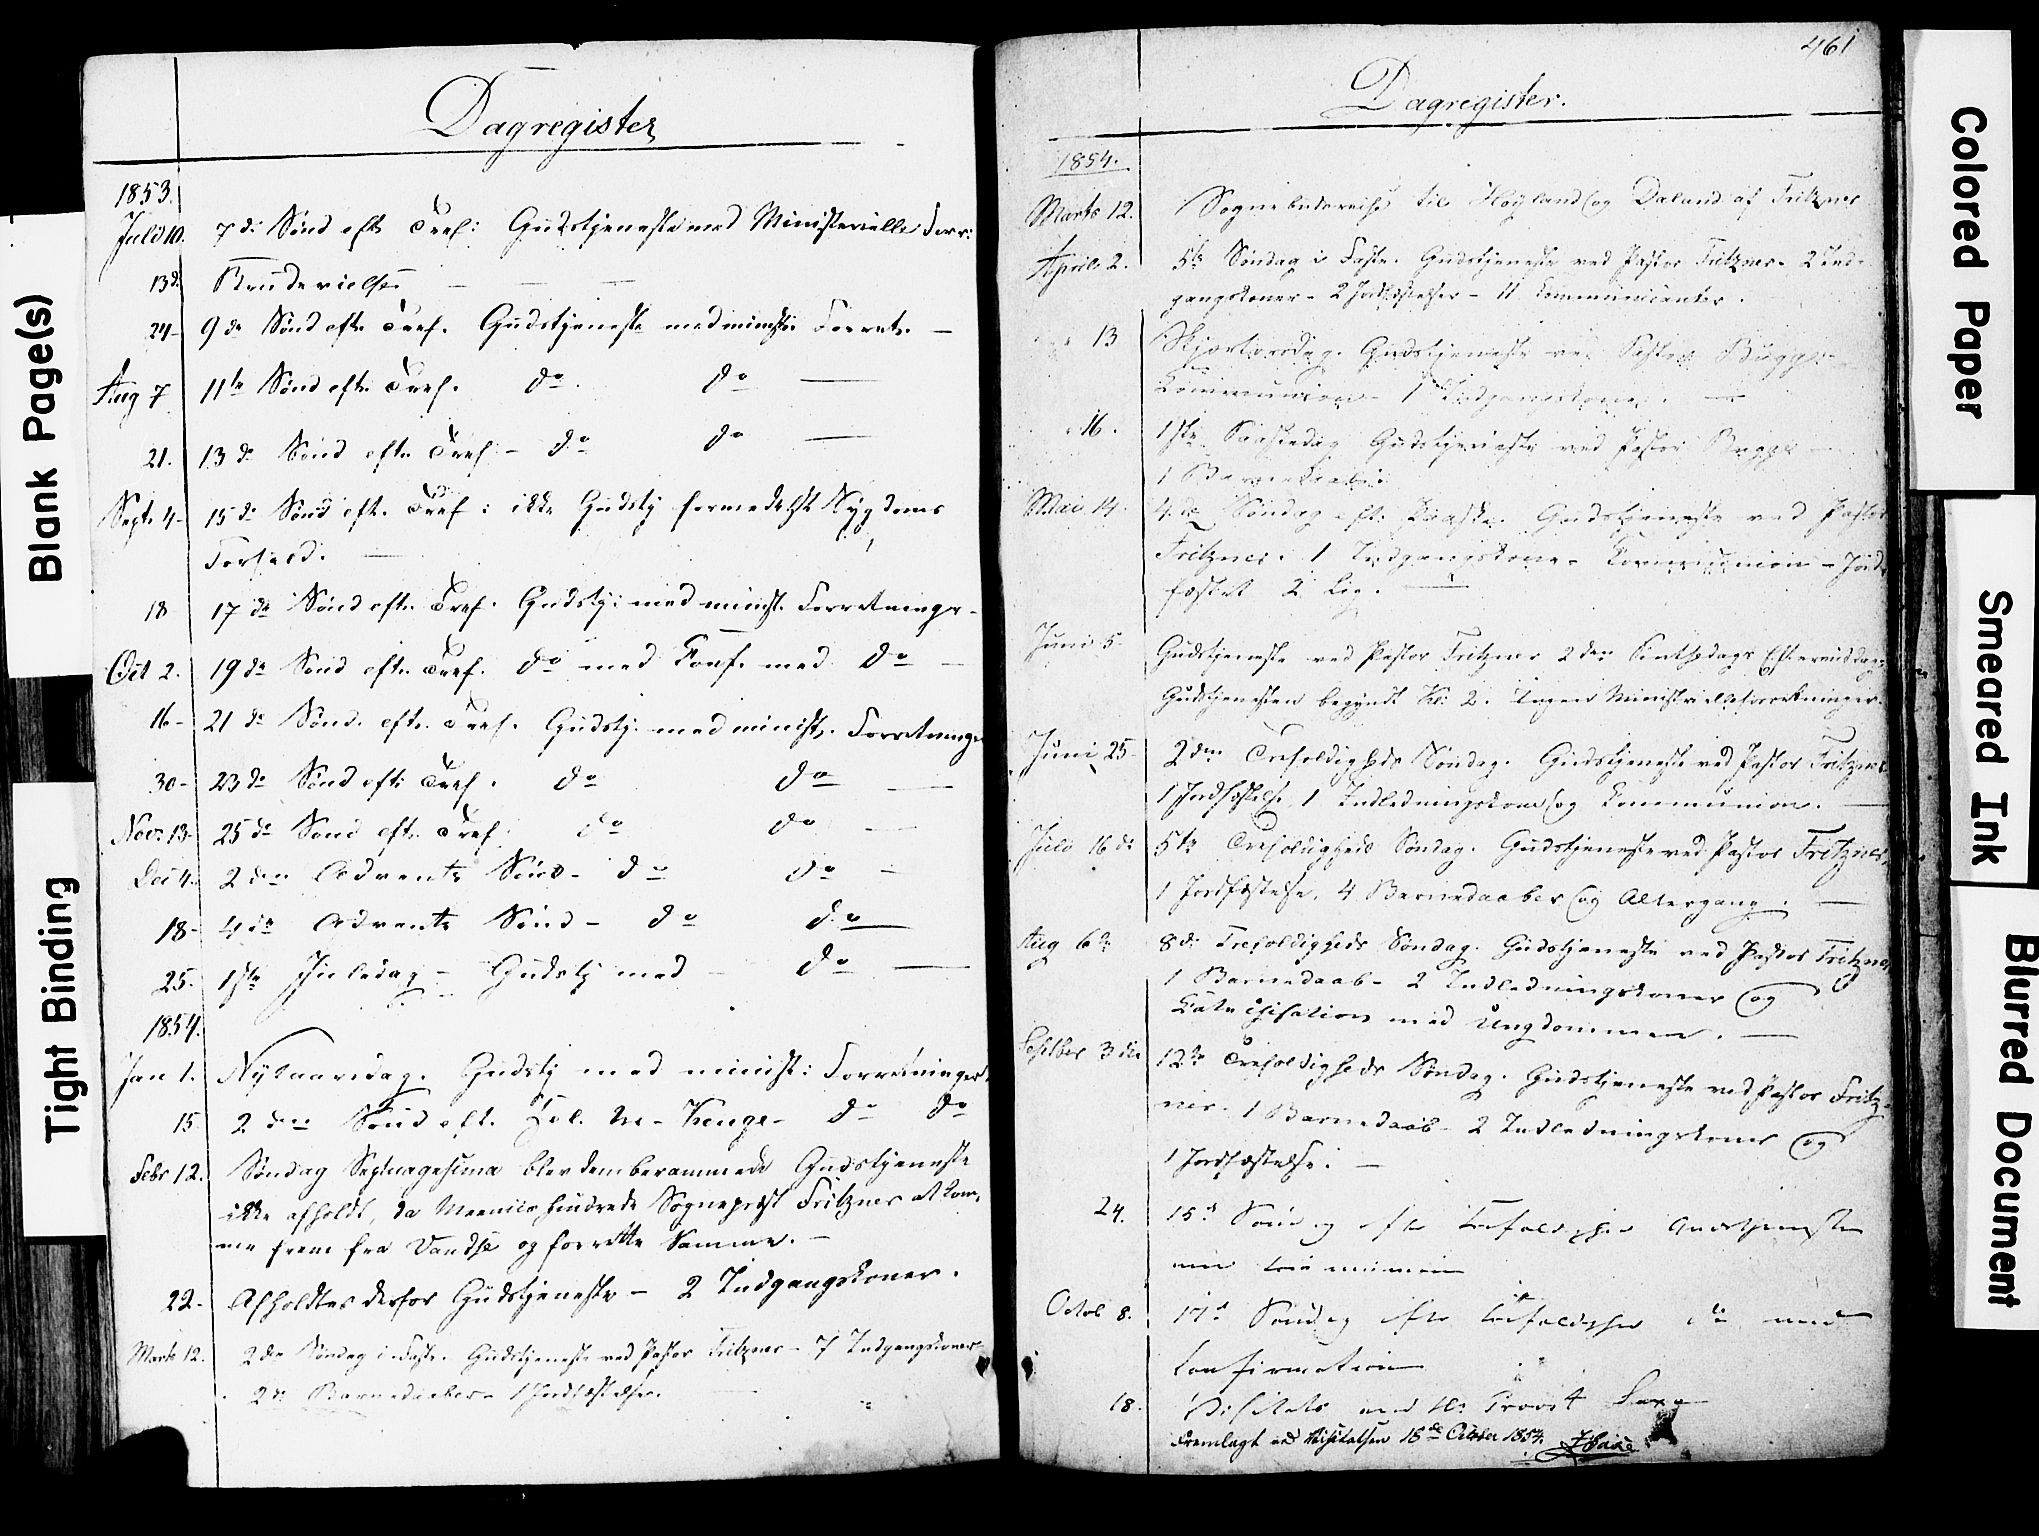 Blank Page(s)
Tight Binding
Dagregister
1853.
Juli 10. 7de Sønd eft. Tref: Gudstjeneste med Ministerielle Forr:
13de Brudevielse —
24 - 9de Sønd eft. Tref. Gudstjeneste med minist: Forretn. —
Aug 7 11te Sønd eft. Tref. do do —
21. 13de Sønd eft. Tref. - do do —
Sept. 4 - 15de Sønd eft. Tref: ikke Gudstj formedelst Sygdoms
Forfald. —
18 17de Sønd eft. Tref. Gudstj: med minist. Forretninger -
Oct 2. 19de Sønd eft. Tref. do med Conf. med do —
16 - 21de Sønd. eft. Tref. Gudstj. med minist. Forretninge
30 - 23de Sønd eft: Tref. do do —
Nov: 13 - 25de Sønd eft. Tref. do do —
Dec 4. 2den Advents Sønd - do do —
18 - 4de Advents Sønd - do do —
25. 1ste Juledag - Gudstj med - do —
1854.
Jan 1. Nytaarsdag. Gudstj med minist: Forretninger
15 2den Sønd eft. Hel. Tre-Konge - do do
Febr 12. Søndag Septuagesima blev den berammede Gudstjeneste
ikke afholdt, da hindrede Sognepræst Fritzner at kom-
me frem fra Vandsø og forrette Samme. —
22 - Afholdtes derfor Gudstjeneste - 2 Indgangskoner.
Marts 12. 2den Søndag i Faste. Gudstjeneste ved Pastor Fritzner - 7 Indgangskoner -
2de Barnedaaber - 1 Jordfæstelse.
461
Dagregister.
1854.
Marts 12. Sognebudsreise til Høyland og Daland af Fritzner
April 2. 5te Søndag i Faste. Gudstjeneste ved Pastor Fritzner. 2 Ind-
gangskoner - 2 Jordfæstelser - 11 Communicanter.
13 Skjærtorsdag. Gudstjeneste ved Pastor Bugge -
Communion - 1 Indgangskone. —
16. 1ste Paaskedag Gudstjeneste ved Pastor Bugge
1 Barnedaab.
Mai 14. 4de Søndag eft. Paaske. Gudstjeneste ved Pastor
Fritzner. 1 Indgangskone - Communion - Jord-
fæstet 2 Lig. —
Juni 5 Gudstjeneste ved Pastor Fritzner 2den Pintsedags Eftermiddag.
Gudstjenesten begyndt Kl: 2. Ingen Ministerialforretninger.
Juni 25 - 2den Trefoldigheds Søndag. Gudstjeneste ved Pastor Fritzner
1 Jordfæstelse, 1 Indledningskone og Communion. —
Juli 16de 5te Trefoldigheds Søndag. Gudstjeneste ved Pastor Fritzner,
1 Jordfæstelse, 4 Barnedaaber og Altergang. —
Aug 6te 8de Trefoldigheds Søndag. Gudstjeneste ved Pastor Fritzner
1 Barnedaab - 2 Indledningskoner og
Catechisation med Ungdommen. —
Septbr 3die 12te Trefoldigheds Søndag. Gudstjeneste ved Pastor Fritz-
ner. 1 Barnedaab - 2 Indledningskoner og
1 Jordfæstelse. —
24. 15de Søndag efter Trefoldighed Gudstjeneste
med Communion
Octob 8. 17de Søndag efter Trefoldighed do med
Confirmation
18. Visitats med Hr Provst
Fremlagt ved Visitatsen 18de October 1854.
Colored Paper
Smeared Ink
Blurred Document